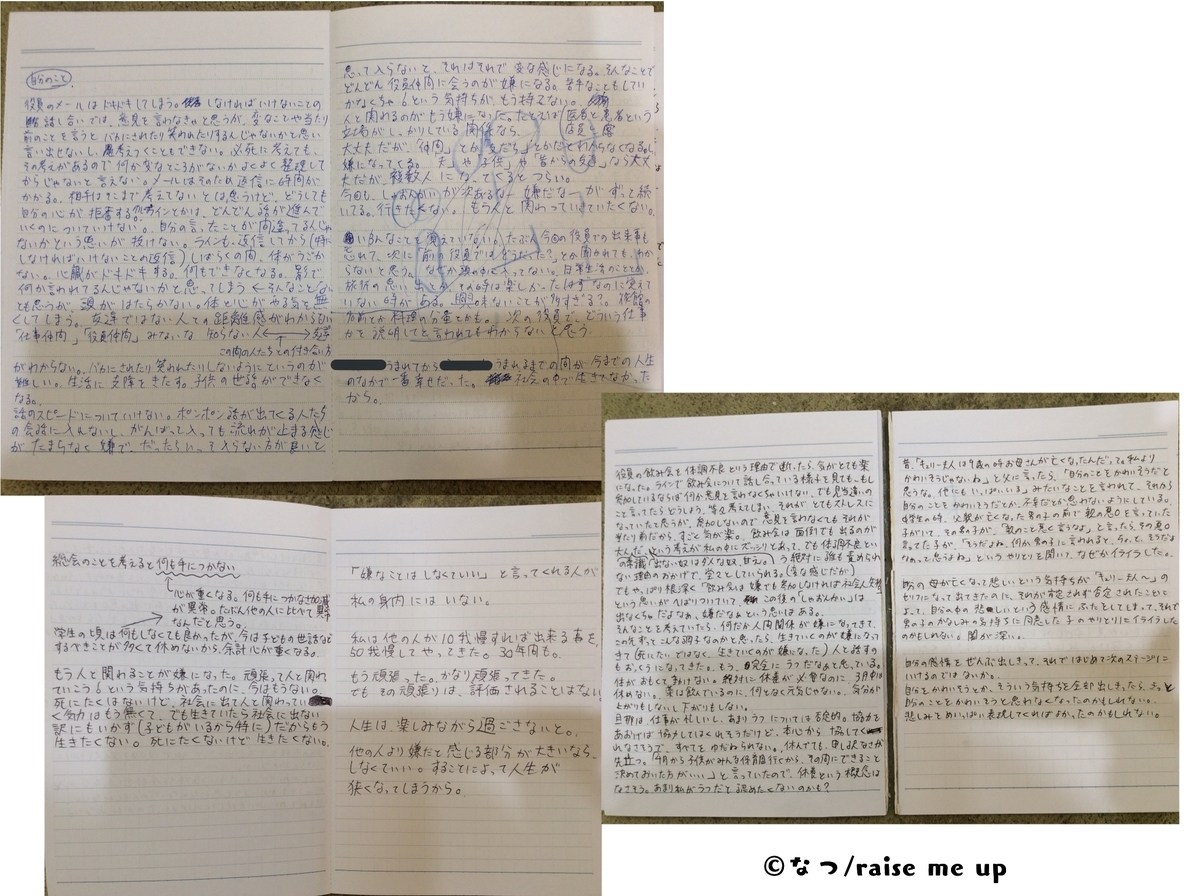 自分のこと
役員のメールはドキドキしてしまう。しなければいけないことの
話し合いでは、意見を言わなきゃと思うが、変なことや当たり
前のことを言うとバカにされたり笑われたりするんじゃないかと思い
言い出せないし、考えつくこともできない。必死に考えても、
その考えがあるので何か変なところがないかよくよく整理して
からじゃないと言えない。メールはそのため返信に時間が
かかる。相手はそこまで考えてないとは思うけど、どうしても
自分の心が拒否する。ラインとかは、どんどん話が進んで
いくのについていけない。自分の言ったことが間違ってるんじゃ
ないかという思いが抜けない。ラインも、返信してから(特に
しなければいけないことの返信)しばらくの間、体がうごか
ない。心臓がドキドキする。何もできなくなる。影で
何か言われてるんじゃないかと思ってしまう←そんなことない
とも思うが、頭がはたらかない。体と心がやる気を無
くしてしまう。友達ではない人との距離感がわからない
「仕事仲間」「役員仲間」みないな 知らない人⟷友達
この間の人たちとの付き合い方
がわからない。バカにされたり笑われたりしないようにというのが
難しい。生活に支障をきたす。子供の世話ができなく
なる。
話のスピードについていけない。ポンポン話が出てくる人たち
の会話に入れないし、がんばって入っても流れが止まる感じ
がたまらなく嫌で、だったらいっそ入らない方が良いと
思って入らないと、それはそれで変な感じになる。そんなことで
どんどん役員仲間に会うのが嫌になる。苦手なこともしてい
かなくちゃ!という気持ちが、もう持てない。
人と関わるのがもう嫌になった。たとえば医者と患者という
店員と客
立場がしっかりしている関係なら、
大丈夫だが、「仲間」とか「友だち」とかだとわからなくなるし
嫌になってくる。「夫」や「子供」や「昔からの友達」なら大丈
夫だが、複数人になってくるとつらい。
今回も、しゃおんかいが次あるな…嫌だな…がずっと続
いてる。行きたくない。もう人と関わっていきたくない。
いろんなことを覚えていない。たぶん今回の役員での出来事も
忘れて、次に「前の役員ではどうだった?」とか聞かれても、わか
らないと思う。なぜか頭の中に入ってない。日常生活のことや、
旅行の思い出とか、その時は楽しかったはずなのに覚えて
いない時がある。興味ないことが多すぎる?。旅館の
名前とか料理の分量とかも。次の役員で、どういう仕事
かを説明してと言われてもわからないと思う。
うまれてから うまれるまでの間が、今までの人生
のなかで一番幸せだった。社会の中で生きてなかった
から。
総会のことを考えると何も手につかない
心が重くなる。何も手につかなさ加減
が異常。たぶん他の人に比べて異常
なんだと思う。
学生の頃は何もしなくても良かったが、今は子どもの世話など
するべきことが多くて休めないから、余計心が重くなる。
もう人と関わることが嫌になった。頑張って人と関わっ
ていこう!という気持ちがあったのに、今はもうない。
死にたくはないけど、社会に出て人と関わってい
く労力はもう無くて、でも生きていたら社会に出ない
訳にもいかず(子どもがいるから特に)だからもう
生きたくない。死にたくないけど生きたくない。
「嫌なことはしなくていい」と言ってくれる人が
私の身内にはいない。
私は他の人が10我慢すれば出来る事を、
50我慢してやってきた。30年間も。
もう頑張った。かなり頑張ってきた。
でもその頑張りは、評価されることはない。
人生は楽しみながら過ごさないと。
他の人より嫌だと感じる部分が大きいなら、
しなくていい。することによって人生が
狭くなってしまうから。
役員の飲み会を体調不良という理由で断ったら、気がとても楽
になった。ラインで飲み会について話し合っている様子を見ても、もし
参加しているならば何か意見を言わなくちゃいけない、でも見当違いの
こと言ったらどうしよう、等と考えてしまい、それがとてもストレスに
なっていたと思うが、参加しないので意見を言わなくてもそれが
当たり前だから、すごく気が楽。飲み会は面倒でも出るのが
大人だ、という考えが私の中にズッシリとあって、でも体調不良とい
の常識(出ない奴はダメな奴、甘え。)う絶対に誰も責められ
ない理由のおかげで、堂々としていられる。(変な感じだが)
でもやっぱり根深く「飲み会は嫌でも参加しなければ社会人失格」
という思いがへばりついていて、この後の「しゃおんかい」は
出なくちゃだよなぁ、嫌だなぁという思いはある。
そんなことを考えていたら、何だか人間関係が嫌になってきて、
この先ずっとこんな調子なのかと思ったら、生きていくのが嫌になっ
きて(死にたいではなく、生きていくのが嫌になった)人と話すの
もおっくうになってきた。もう、完全にうつだなぁと思っている。
体がおもくてしょうがない。絶対に休養が必要なのに、3月中は
休めない。薬は飲んでいるのに、何となく元気じゃない。気分が
上がりもしないし下がりもしない。
旦那は、仕事が忙しいし、あまりうつについては否定的。協力を
あおげば協力してはくれそうだけど、本心から協力してく
れなさそうで、すべてをゆだねられない。休んでても、申し訳なさが
先立つ。「4月から子供がみんな保育園行くから、その間にできること
決めておいた方がいい」と言っていたので、休養という概念は
なさそう。あまり私がうつだと認めたくないのかも?
昔、「キュリー夫人は9歳の時お母さんが亡くなったんだって。私より
かわいそうじゃないね」と父に言ったら、「自分のことをかわいそうだと
思うな。他にもいっぱいいる」みたいなことを言われて、それから
自分のことをかわいそうだとか、不幸だとか思わないようにしている。
中学生の時、父親が亡くなった男の子の前で親の悪口を言っていた
子がいて、その男の子が、「親のこと悪く言うなよ」と言ったら、その悪口
言ってた子が、「そうだよね。何か男の子に言われると、ちょっと、そうだよ
なぁって思うよね」というやりとりを聞いて、なぜかイライラした。
母が亡くなって悲しいという気持ちが「キュリー夫人〜」の
セリフになって出てきたのに、それが否定され否定されたことに
よって、自分の中の悲しいという感情にふたをしてしまって、それで
男の子のかなしみの気持ちに同意した子のやりとりにイライラした
のかもしれない。闇が深い。
自分の感情をぜんぶ出しきって、それではじめて次のステージに
いけるのではないか。
自分をかわいそうとか、そういう気持ちを全部出しきったら、きっと
自分のことをかわいそうと思わなくなったのかもしれない。
悲しみをめいっぱい表現してくればよかったのかもしれない。
©なつ/raise me up